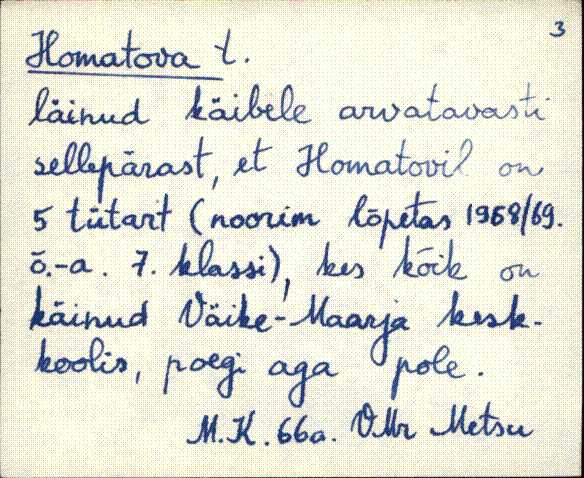 3
Homatova t.
läinud käibele arvatavasti
sellepärast, et Homatovil on
5 tütart (noorim lõpetas 1968/69.
õ.-a. 7. klassi), kes kõik on
käinud Väike-Maarja kesk-
koolis, poegi aga pole.
M.K. 66a. VMr Metsu